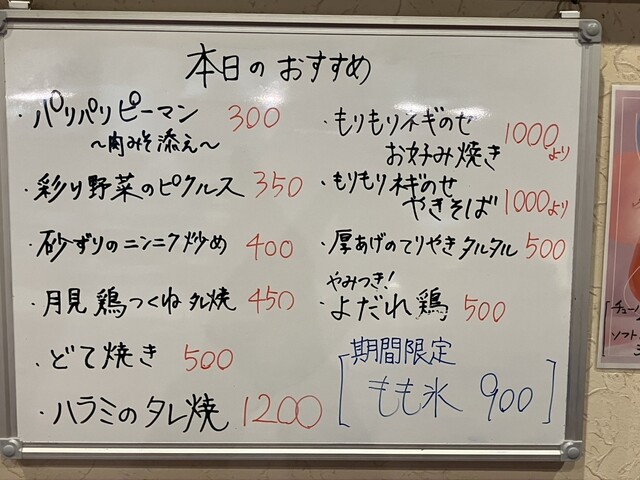 本日のおすすめ
・パリパリピーマン 300
～肉みそ添え～
・彩り野菜のピクルス 350
・砂ずりのニンニク炒め 400
・月見鶏つくねタレ焼 450
・どて焼き 500
・ハラミのタレ焼 1200
・もりもりネギのせ
お好み焼き 1000より
・もりもりネギのせ
やきそば 1000より
・厚あげのてりやきタルタル 500
やみつき!
・よだれ鶏 500
期間限定
もも氷 900
「チューハ
ソフト